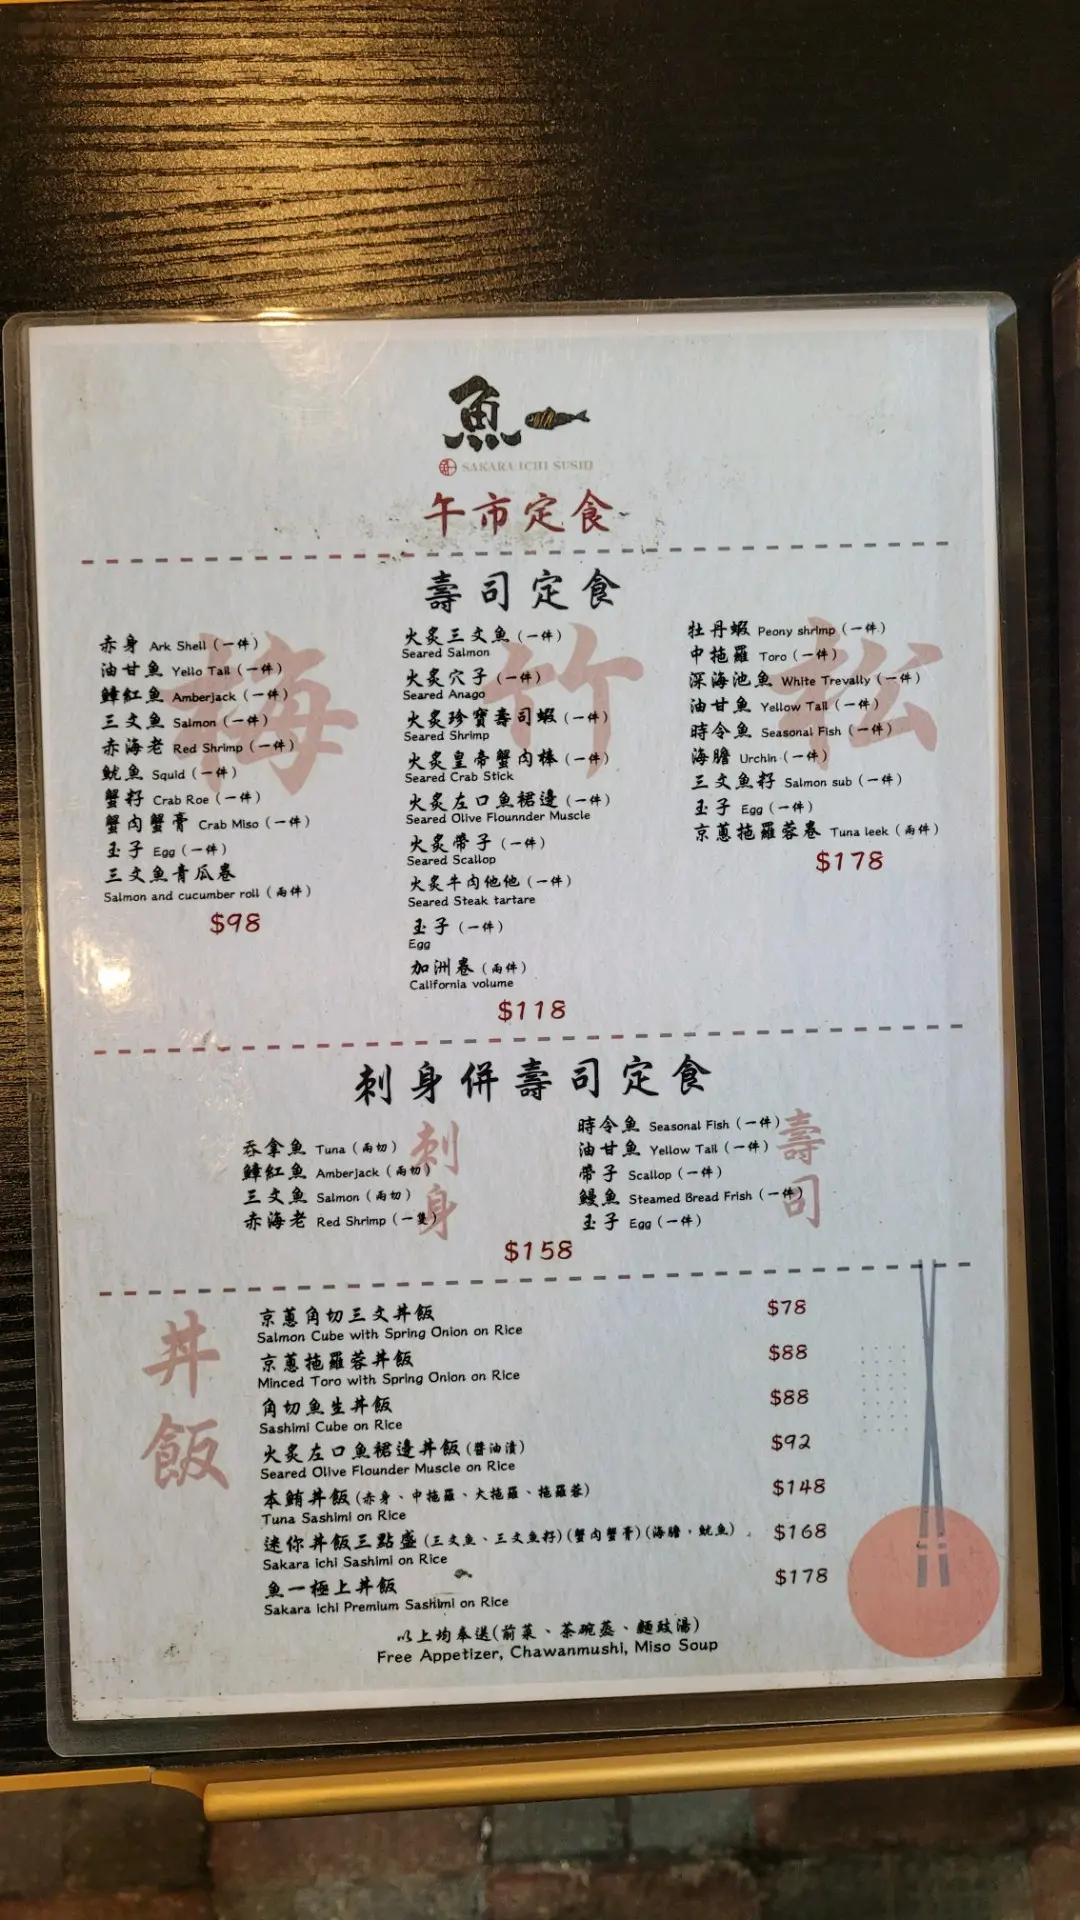 魚一
SAKARA ICHI SUSHI
午市定食
壽司定食
梅
赤身 Ark Shell (一件)
油甘魚 Yello Tail (一件)
鱆紅魚 Amberjack (一件)
三文魚 Salmon (一件)
赤海老 Red Shrimp (一件)
魷魚 Squid (一件)
蟹籽 Crab Roe (一件)
蟹肉蟹膏 Crab Miso (一件)
玉子 Egg (一件)
三文魚青瓜卷
Salmon and cucumber roll (兩件)
$98
竹
火炙三文魚 (一件)
Seared Salmon
火炙穴子 (一件)
Seared Anago
火炙珍寶壽司蝦 (一件)
Seared Shrimp
火炙皇帝蟹肉棒 (一件)
Seared Crab Stick
火炙左口魚裙邊 (一件)
Seared Olive Flounnder Muscle
火炙帶子 (一件)
Seared Scallop
火炙牛肉他他 (一件)
Seared Steak tartare
玉子 (一件)
Egg
加洲卷 (兩件)
California volume
$118
松
牡丹蝦 Peony shrimp (一件)
中拖羅 Toro (一件)
深海池魚 White Trevally (一件)
油甘魚 Yellow Tail (一件)
時令魚 Seasonal Fish (一件)
海膽 Urchin (一件)
三文魚籽 Salmon sub (一件)
玉子 Egg (一件)
京蔥拖羅蓉卷 Tuna leek (兩件)
$178
刺身併壽司定食
刺身
吞拿魚 Tuna (兩切)
鱆紅魚 Amberjack (兩切)
三文魚 Salmon (兩切)
赤海老 Red Shrimp (一隻)
壽司
時令魚 Seasonal Fish (一件)
油甘魚 Yellow Tail (一件)
帶子 Scallop (一件)
鰻魚 Steamed Bread Frish (一件)
玉子 Egg (一件)
$158
丼飯
京蔥角切三文丼飯 $78
Salmon Cube with Spring Onion on Rice
京蔥拖羅蓉丼飯 $88
Minced Toro with Spring Onion on Rice
角切魚生丼飯 $88
Sashimi Cube on Rice
火炙左口魚裙邊丼飯 (醬油漬) $92
Seared Olive Flounder Muscle on Rice
本鮪丼飯 (赤身、中拖羅、大拖羅、拖羅蓉) $148
Tuna Sashimi on Rice
迷你丼飯三點盛 (三文魚、三文魚籽) (蟹肉蟹膏) (海膽，魷魚) $168
Sakara ichi Sashimi on Rice
魚一極上丼飯 $178
Sakara ichi Premium Sashimi on Rice
以上均奉送(前菜、茶碗蒸、麵豉湯)
Free Appetizer, Chawanmushi, Miso Soup